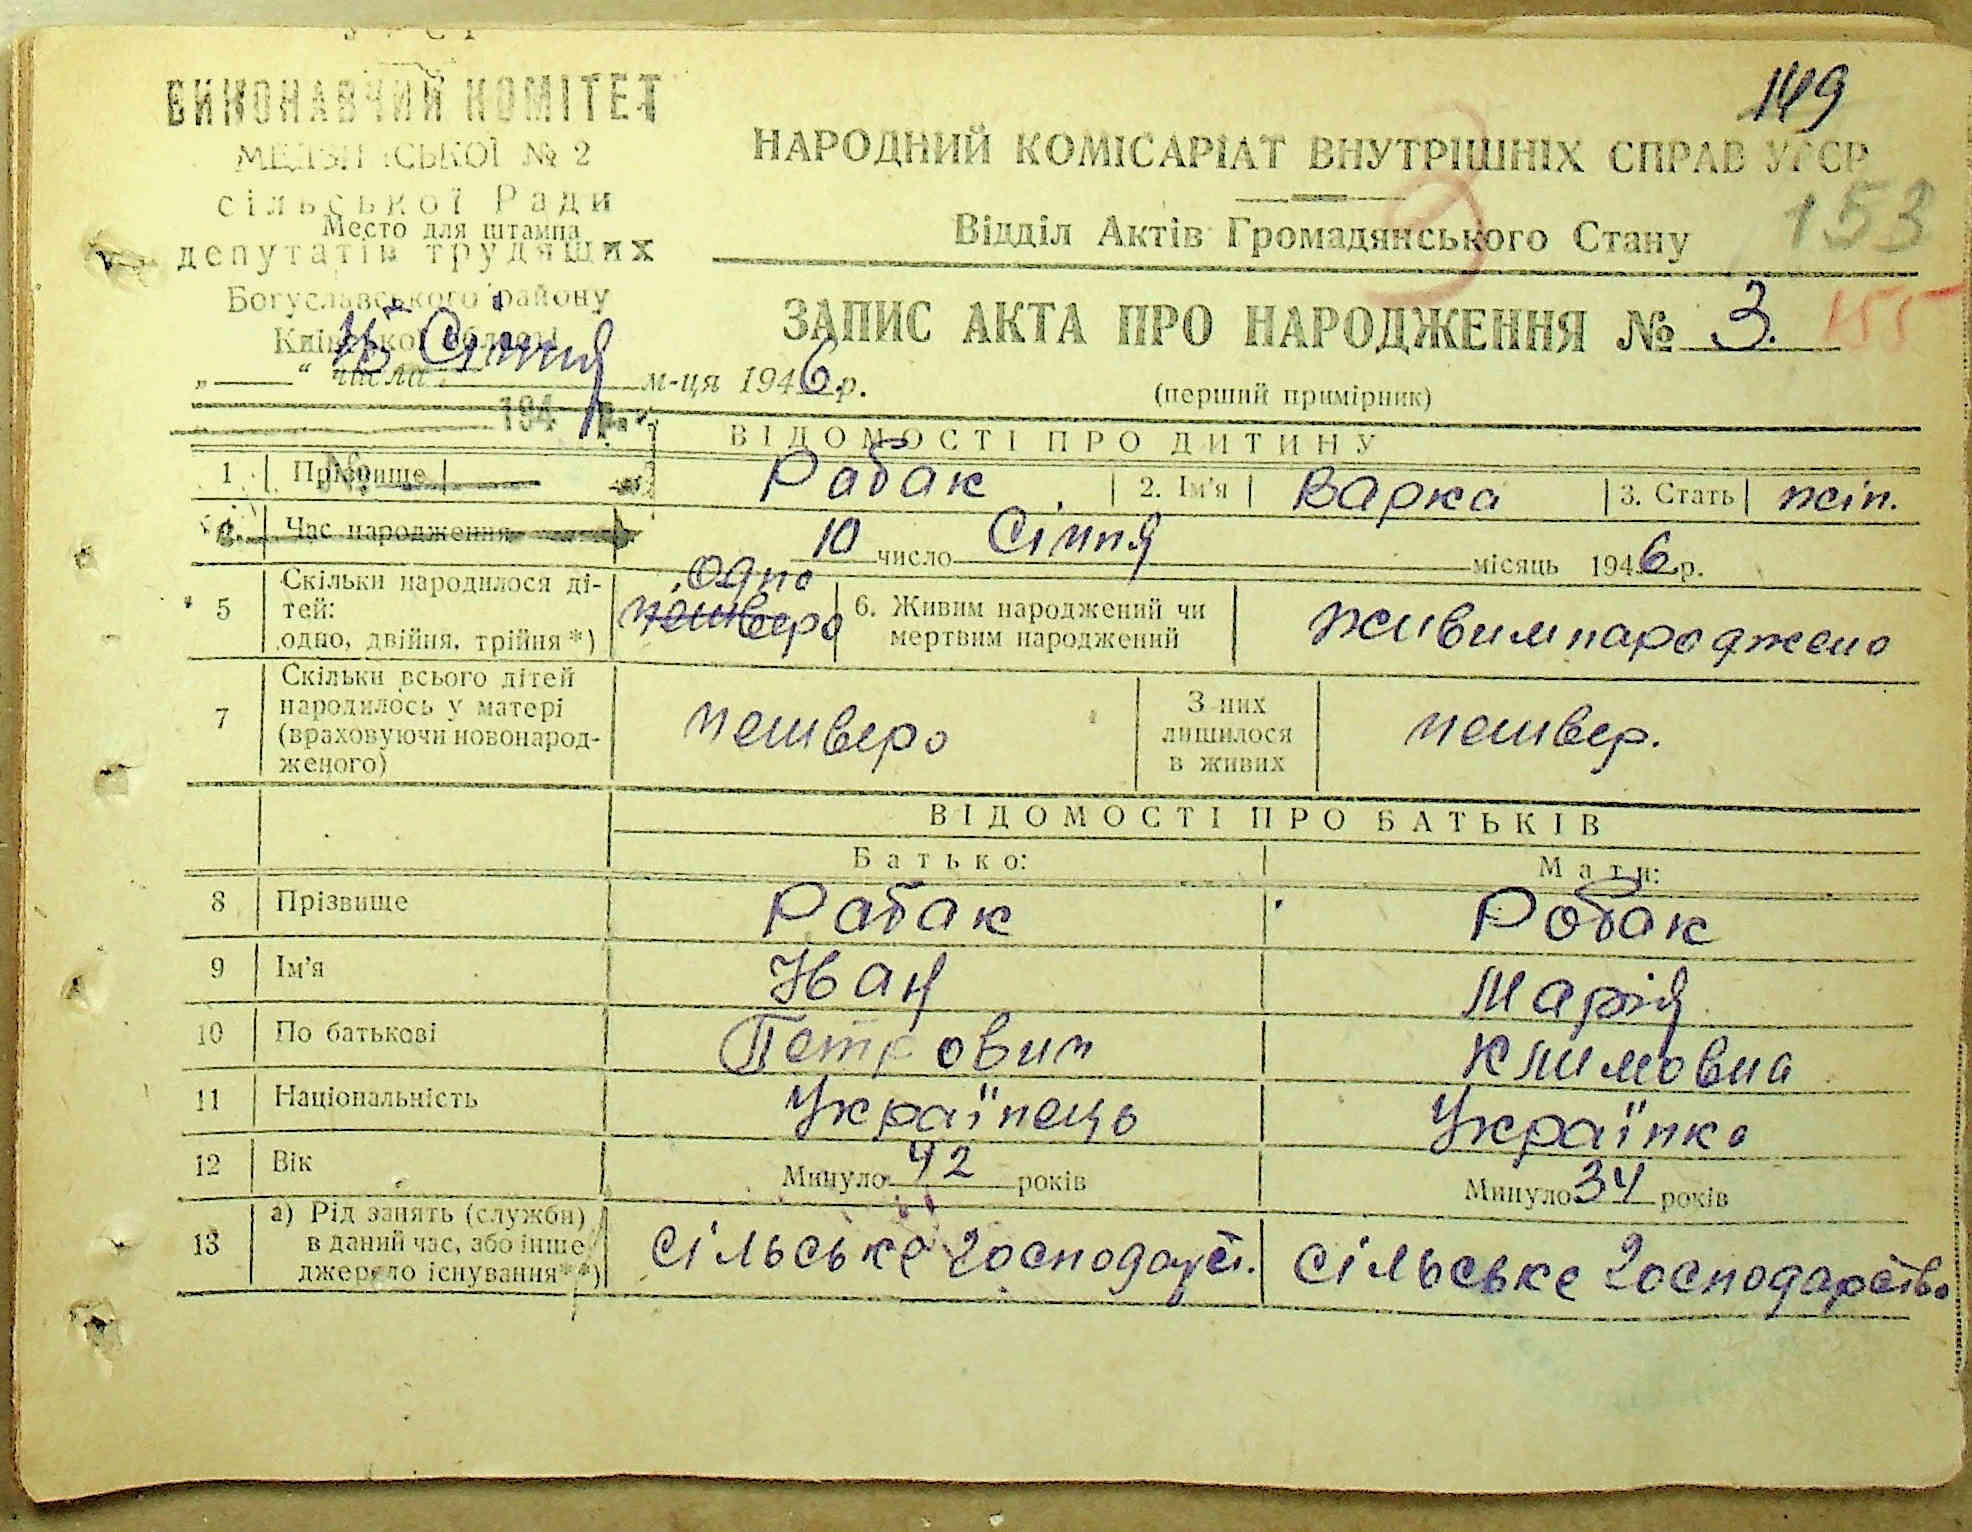 149
ВИКОНАВЧИЙ КОМІТЕТ
№ 2
сільської Ради
Место для штампа
депутатів трудящих
Богуславського району
Київської області
НАРОДНИЙ КОМІСАРІАТ ВНУТРІШНІХ СПРАВ УРСР
153
Відділ Актів Громадянського Стану
ЗАПИС АКТА ПРО НАРОДЖЕННЯ № 3.
155
„ “ числа Січня м-ця 1946 р.
(перший примірник)
194 р.
ВІДОМОСТІ ПРО ДИТИНУ
1 Прізвище Рабак 2. Ім'я Варка 3. Стать жін.
4. Час народження 10 число Січня місяць 1946 р.
5 Скільки народилося ді-
тей:
одно, двійня, трійня*)
одно
четверо
6. Живим народжений чи
мертвим народжений
живимнароджено
7 Скільки всього дітей
народилось у матері
(враховуючи новонарод-
женого)
четверо
З них
лишилося
в живих
четвер.
ВІДОМОСТІ ПРО БАТЬКІВ
Батько: Мати:
8 Прізвище Рабак Робак
9 Ім'я Іван Марія
10 По батькові Петрович Климовна
11 Національність Українець Українка
12 Вік Минуло 42 років Минуло 34 років
13 а) Рід занять (служби)
в даний час, або інше
джерело існування**)
сільське господарст. сільське господарство